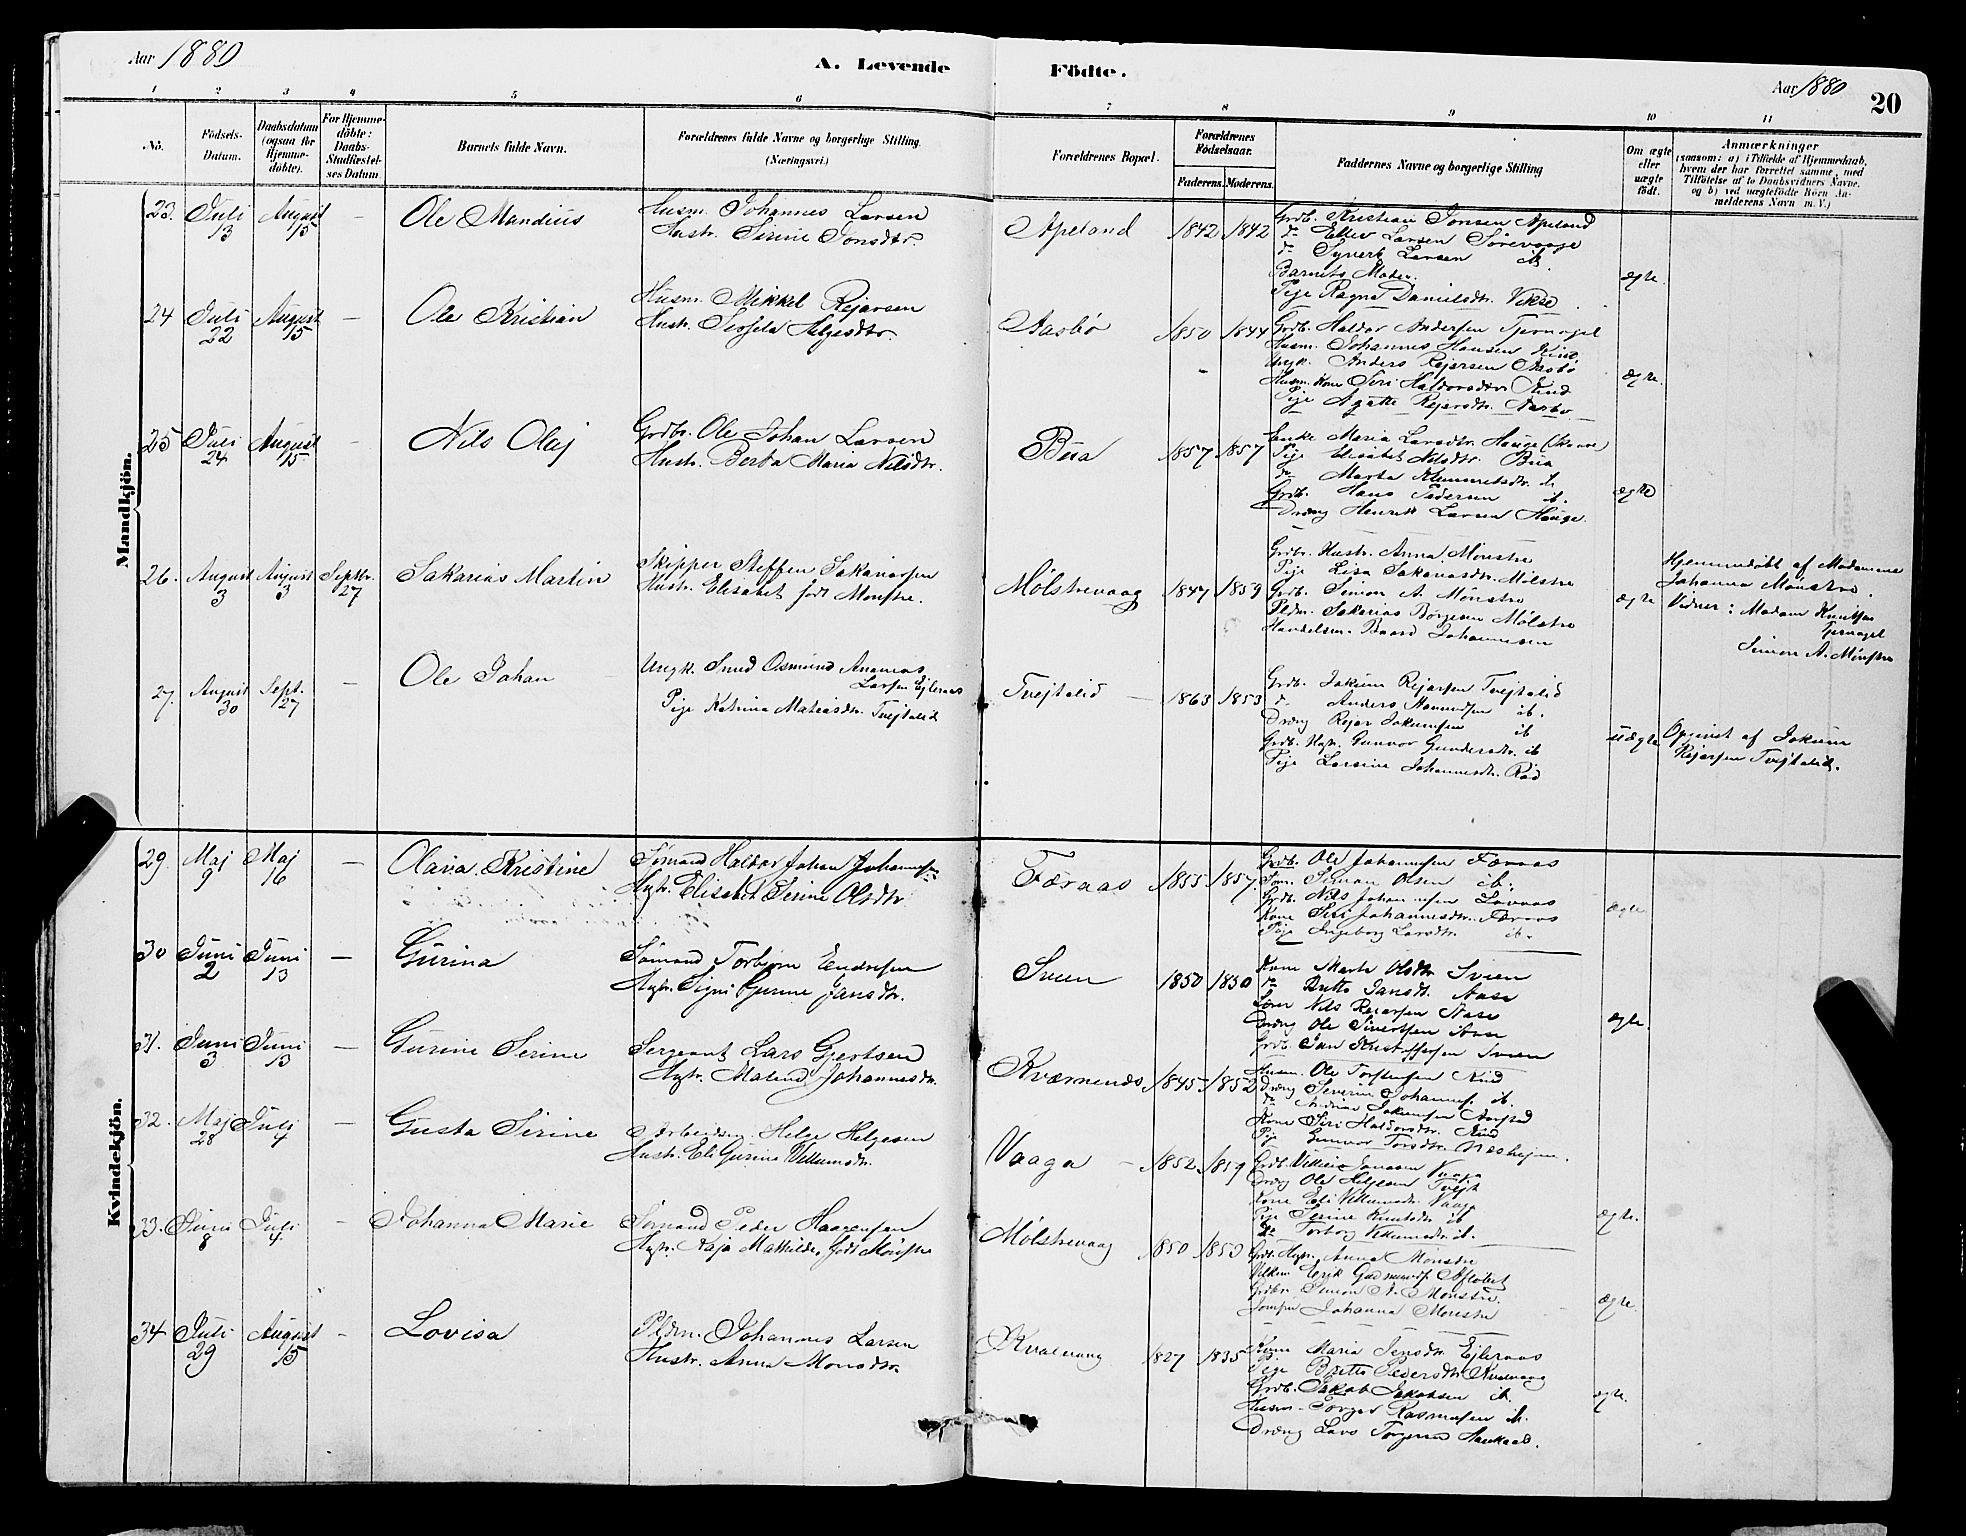 Aar 1880
A. Levende Födte.
Aar 1880
20
1 2 3 4 5 6 7 8 9 10 11
No.
Födsels-
Datum.
Daabsdatum
(ogsaa for
Hjemme-
döbte).
For Hjemme-
döbte:
Daabs-
Stadfæstel-
ses Datum
Barnets fulde Navn.
Forældrenes fulde Navne og borgerlige Stilling
(Næringsvei.)
Forældrenes Bopæl.
Forældrenes
Födselsaar.
Faderens. Moderens.
Faddernes Navne og borgerlige Stilling
Om ægte
eller
uægte
födt.
Anmærkninger
(saasom: a) i Tilfælde af Hjemmedaab,
hvem der har forrettet samme, med
Tilföielse af to Daabsvidners Navne,
og b) ved uægtefödte Börn An-
melderens Navn m. V.)
Mandkjön.
23. Juli 13 August 15 — Ole Mandius
Husm. Johannes Larsen
Hustr. Sirine Jonsdtr.
Apeland 1842 1842
Grdb. Kristian Jonsen Apeland
d. Ellev Larsen Sörevaage
d. Syvert Larsen ib.
Barnets Moder.
Pige Ragna Danielsdtr. Vikse
ægte.
24 Juli 22 August 15 — Ole Kristian
Husm. Mikkel Rejarsen
Hustr. Helgesdtr.
Aasbö 1850 1844
Grdb. Haldor Andersen Tjernagel
Husm. Johannes Hansen
Ungk. Anders Rejersen Aasbö
Husm. Kone Siri Haldorsdtr.
Pige Agatte Rejersdtr. Aasbö
ægte.
25 Juli 24 August 15 — Nils Olaj
Grdbr. Ole Johan Larsen
Hustr. Berta Maria Nilsdtr.
Bua 1857 1857
Enke Maria Larsdtr. Hauge
Pige Elisabet Nilsdtr. Bua
d. Marta Klemmetsdtr. ib.
Grdb. Hans Pedersen ib.
Dreng Henrik Larsen Hauge.
ægte
26. August 3 August 3 Septbr. 27 Sakarias Martin
Skipper Steffen Sakariasen
Hustr. Elisabet född Mönstre.
Mölstrevaag 1847 1859
Grdbr. Hustr. Anna Mönstre
Pige Lisa Sakariasdtr. Mölstre
Grdb. Simon A. Mönstre
Pldm. Sakarias Börgesen Mölstre
Handelsm. Baard Johannesen
ægte
Hjemmedöbt af Madamme
Johanna Mönstre.
Vidner: Madam Knutsen
Tjernagel
Simon A. Mönstre
27. August 30 Sept. 27 — Ole Johan
Ungk. Osmund Ananias
Larsen Ejleraas
Pige Katrina Matiasdtr. Tvejtalid
Tvejtalid — 1863 1853
Grdb. Jakum Rejarsen Tvejtalid
d. Anders ib.
Dreng Rejar Jakumsen ib
Grdb. Hustr. Gunvor Gundersdtr. ib
Pige Larsine Johannesdtr. Röd
uægte
Opgivet af Jakum
Rejarsen Tvejtalid.
Kvindekjön.
29. Maj 9 Maj 16 — Olava Kristine
Sömand Haldor Johan Johannesen
Hustr. Elisabet Serine Olsdtr
Færaas 1855 1857.
Grdb. Ole Johannesen Færaas
Söm. Simon Olsen ib.
Grdb. Nils Johannesen Lövaas
Kone Siri Johannesdtr. Færaas
Pige Ingeborg Larsdtr. ib.
ægte
30 Juni 2 Juni 13 — Gurina
Sömand Torbjörn Endresen
Hustr. Signi Gurine Jansdtr.
Sveen 1850 1850
Kone Marta Olsdtr. Sveen
d. Britta Jansdt. Aase
Nils Rejersen Aase
Dreng Ole Sivertsen Aase
Grdb. Jan Kristoffersen Sveen
ægte.
31. Juni 3 Juni 13 — Gurine Serine
Sergeant Lars Gjertsen
Hustr. Malend Johannesdtr.
Kværnenæs 1845 1852
Husm. Ole Torstensen
Dreng Severin Johannes. ib.
Jakumsen
Kone Siri Haldorsdtr.
Pige Gunvor Torsdtr.
32. Maj 28 Juli 4 — Gusta Serine
Arbeidsm. Helge Helgesen
Hustr. Eli Gurine Villumsdtr.
Vaaga — 1852 1859
Grdb. Villum Jonasen Vaaga
Dreng Ole Helgesen Tvejt
Kone Eli Villumsdtr. Vaaga
Pige Serine Knutsdtr ib
do Torborg Villumsdtr. ib.
ægte.
33. Juni 8 Juli 4 — Johanna Marie
Sömand Peder Haagensen
Hustr. Kaja Mathilde, född Mönstre
Mölstrevaag 1850 1850
Grdb. Hustr. Anna Mönstre
Erik
Grdbr. Simon A. Mönstre
Jomfru Johanna Mönstre
ægte.
34 Juli 29 August 15 — Lovisa
Pldm. Johannes Larsen
Hustr. Anna Monsdtr.
Kvalevaag 1827 1835
Kone Maria Jensdtr Ejleraas
Pige Britta Pedersdtr. Kvalevaag
Grdb. Jakob Jakobsen ib.
Husm. Torger Rasmusen ib.
Dreng Lars Torgersen
ægte.